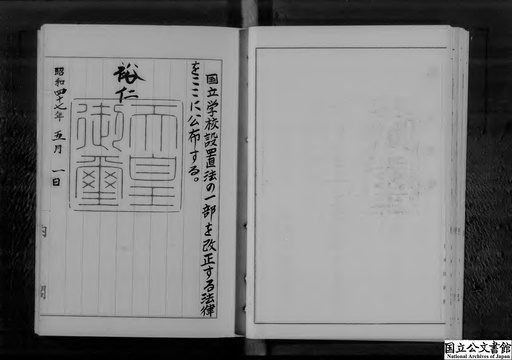 国立学校設置法の一部を改正する法律
をここに公布する。
裕仁
天皇
御璽
昭和四十七年五月一日
国立公文書館
National Archives of Japan